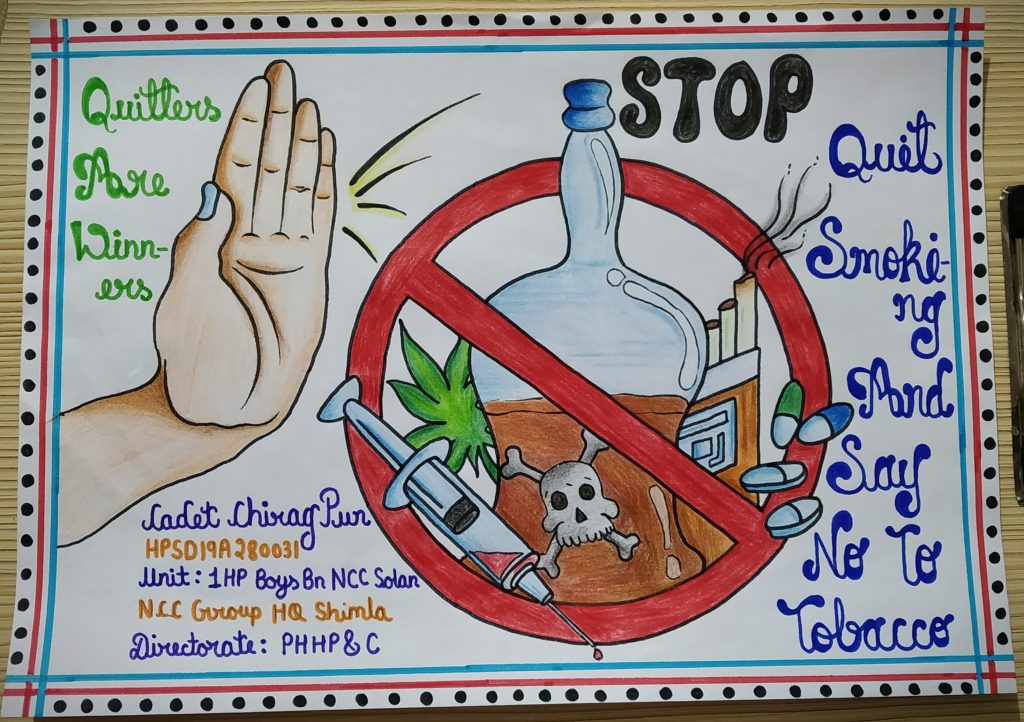 Quitters
Are
Winn-
ers
STOP
Quit
Smoki-
ng
And
Say
No To
Tobacco
Cadet Chirag Pun
HPSD19A280031
Unit: 1HP Boys Bn NCC Solan
NCC Group HQ Shimla
Directorate: PHHP&C